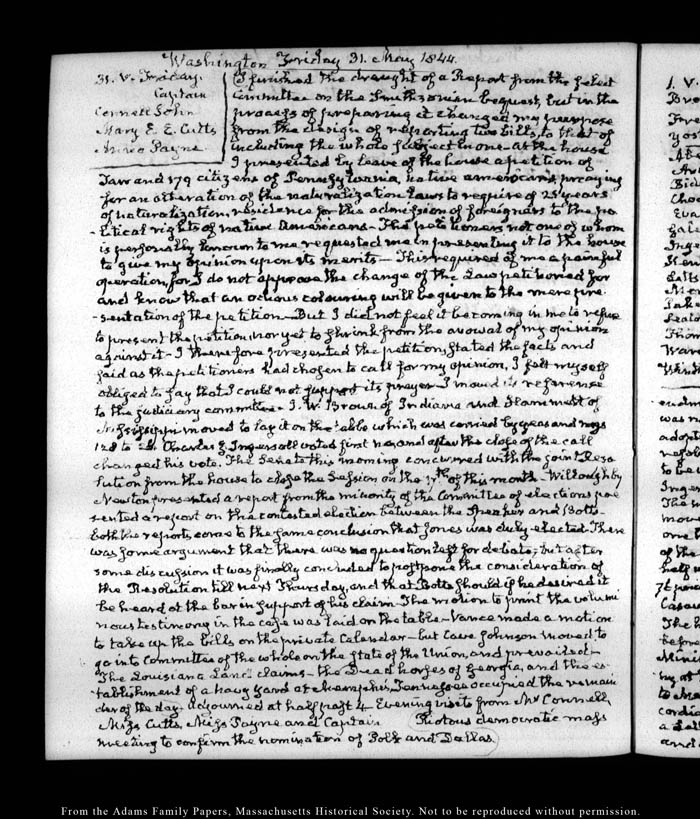 Washington Friday 31. May 1844.
31. V. Friday.
Captain
Connell John
Mary E. E. Cutts
Anna Payne
I finished the draught of a Report from the select
Committee on the Smithsonian bequest, but in the
process of preparing it changed my purpose
from the design of reporting two bills, to that of
including the whole subject in one. At the house
I presented by leave of the house a petition of
and 179 citizens of Pennsylvania, native americans, praying
for an alteration of the naturalization Laws to require 25 years
of naturalization, residence for the admission of foreigners to the po
-litical rights of native Americans. The petitioners not one of whom
is personally known to me requested me in presenting it to the house
to give my opinion upon its merits — This required of me a painful
operation, for I do not approve the change of the Law petitioned for
and know that an odious colouring will be given to the mere pre
-sentation of the petition — But I did not feel it becoming in me to refuse
to present the petition, nor yet to shrink from the avowal of my opinion
against it — I therefore presented the petition, stated the facts and
said as the petitioners had chosen to call for my opinion, I felt myself
obliged to say that I could not support its prayer. I moved its reference
to the judiciary committee. J. W. Brown of Indiana and Hammett of
Mississippi moved to lay it on the table which was carried by yeas and nays
128 to Charles J. Ingersoll voted first no, and after the close of the call
changed his vote. The Senate this morning concurred with the joint Reso
lution from the house to close the Session on the 17th. of this month — Willoughby
Newton presented a report from the minority of the Committee of elections pre
sented a report on the contested election between the Speaker and Botts —
both the reports come to the same conclusion that Jones was duly elected. There
was some argument that there was no question left for debate; but after
some discussion it was finally concluded to postpone the consideration of
the Resolution till next Thursday, and that Botts should if he desired it
be heard at the bar in support of his claim. The motion to print the volumi
nous testimony in the case was laid on the table — Vance made a motion
to take up the bills on the private Calendar — but Cave Johnson moved to
go into Committee of the whole on the State of the Union, and prevailed —
The Louisiana Land claims — the Dead horses of Georgia, and the es-
tablishment of a navy yard at Memphis, Tennessee occupied the remain
der of the day. adjourned at half past 4. Evening visits from Mr Connell,
Miss Cutts, Miss Payne and Captain Riotous democratic mass
meeting to confirm the nomination of Polk and Dallas
1. V.
From the Adams Family Papers, Massachusetts Historical Society. Not to be reproduced without permission.